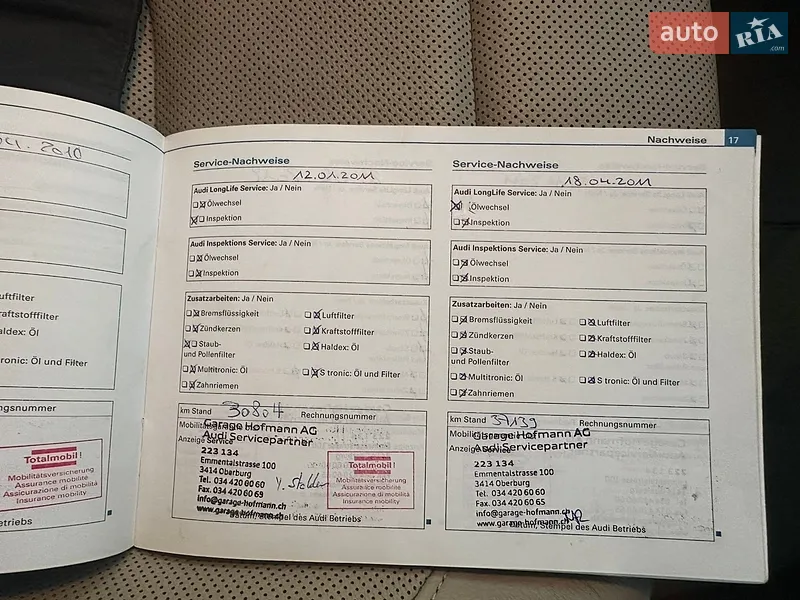 auto RIA .com
Nachweise 17
2010
uftfilter
raftstofffilter
aldex: Öl
tronic: Öl und Filter
ngsnummer
Totalmobil!
Mobilitätsversicherung
Assurance mobilité
Assicurazione di mobilità
Insurance mobility
etriebs
Service-Nachweise
12.01.2011
Audi LongLife Service: Ja / Nein
Ölwechsel
Inspektion
Audi Inspektions Service: Ja / Nein
Ölwechsel
Inspektion
Zusatzarbeiten: Ja / Nein
Bremsflüssigkeit
Luftfilter
Zündkerzen
Kraftstofffilter
Staub-
und Pollenfilter
Haldex: Öl
Multitronic: Öl
S tronic: Öl und Filter
Zahnriemen
km Stand 30804 Rechnungsnummer
Anzeige Service
Garage Hofmann AG
Audi Servicepartner
223 134
Emmentalstrasse 100
3414 Oberburg
Tel. 034 420 60 60
Fax. 034 420 60 69
info@garage-hofmann.ch
www.garage-hofmann.ch
Totalmobil!
Mobilitätsversicherung
Assurance mobilité
Assicurazione di mobilità
Insurance mobility
Datum, Stempel des Audi Betriebs
Service-Nachweise
18.04.2011
Audi LongLife Service: Ja / Nein
Ölwechsel
Inspektion
Audi Inspektions Service: Ja / Nein
Ölwechsel
Inspektion
Zusatzarbeiten: Ja / Nein
Bremsflüssigkeit
Luftfilter
Zündkerzen
Kraftstofffilter
Staub-
und Pollenfilter
Haldex: Öl
Multitronic: Öl
S tronic: Öl und Filter
Zahnriemen
km Stand 37139 Rechnungsnummer
Anzeige Service
Garage Hofmann AG
Audi Servicepartner
223 134
Emmentalstrasse 100
3414 Oberburg
Tel. 034 420 60 60
Fax. 034 420 60 65
info@garage-hofmann.ch
www.garage-hofmann.ch
Datum, Stempel des Audi Betriebs